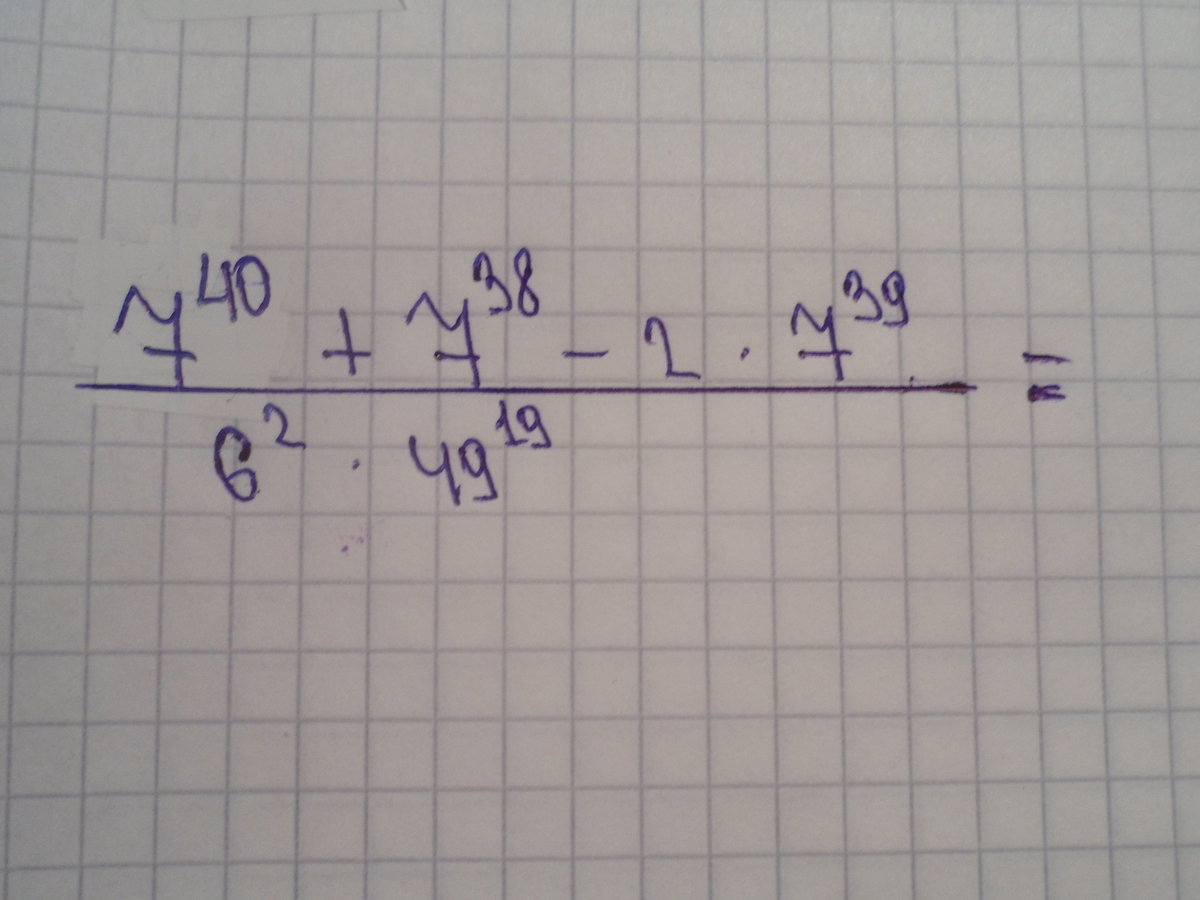 7⁴⁰ + 7³⁸ - 2 · 7³⁹ =
6² · 49¹⁹